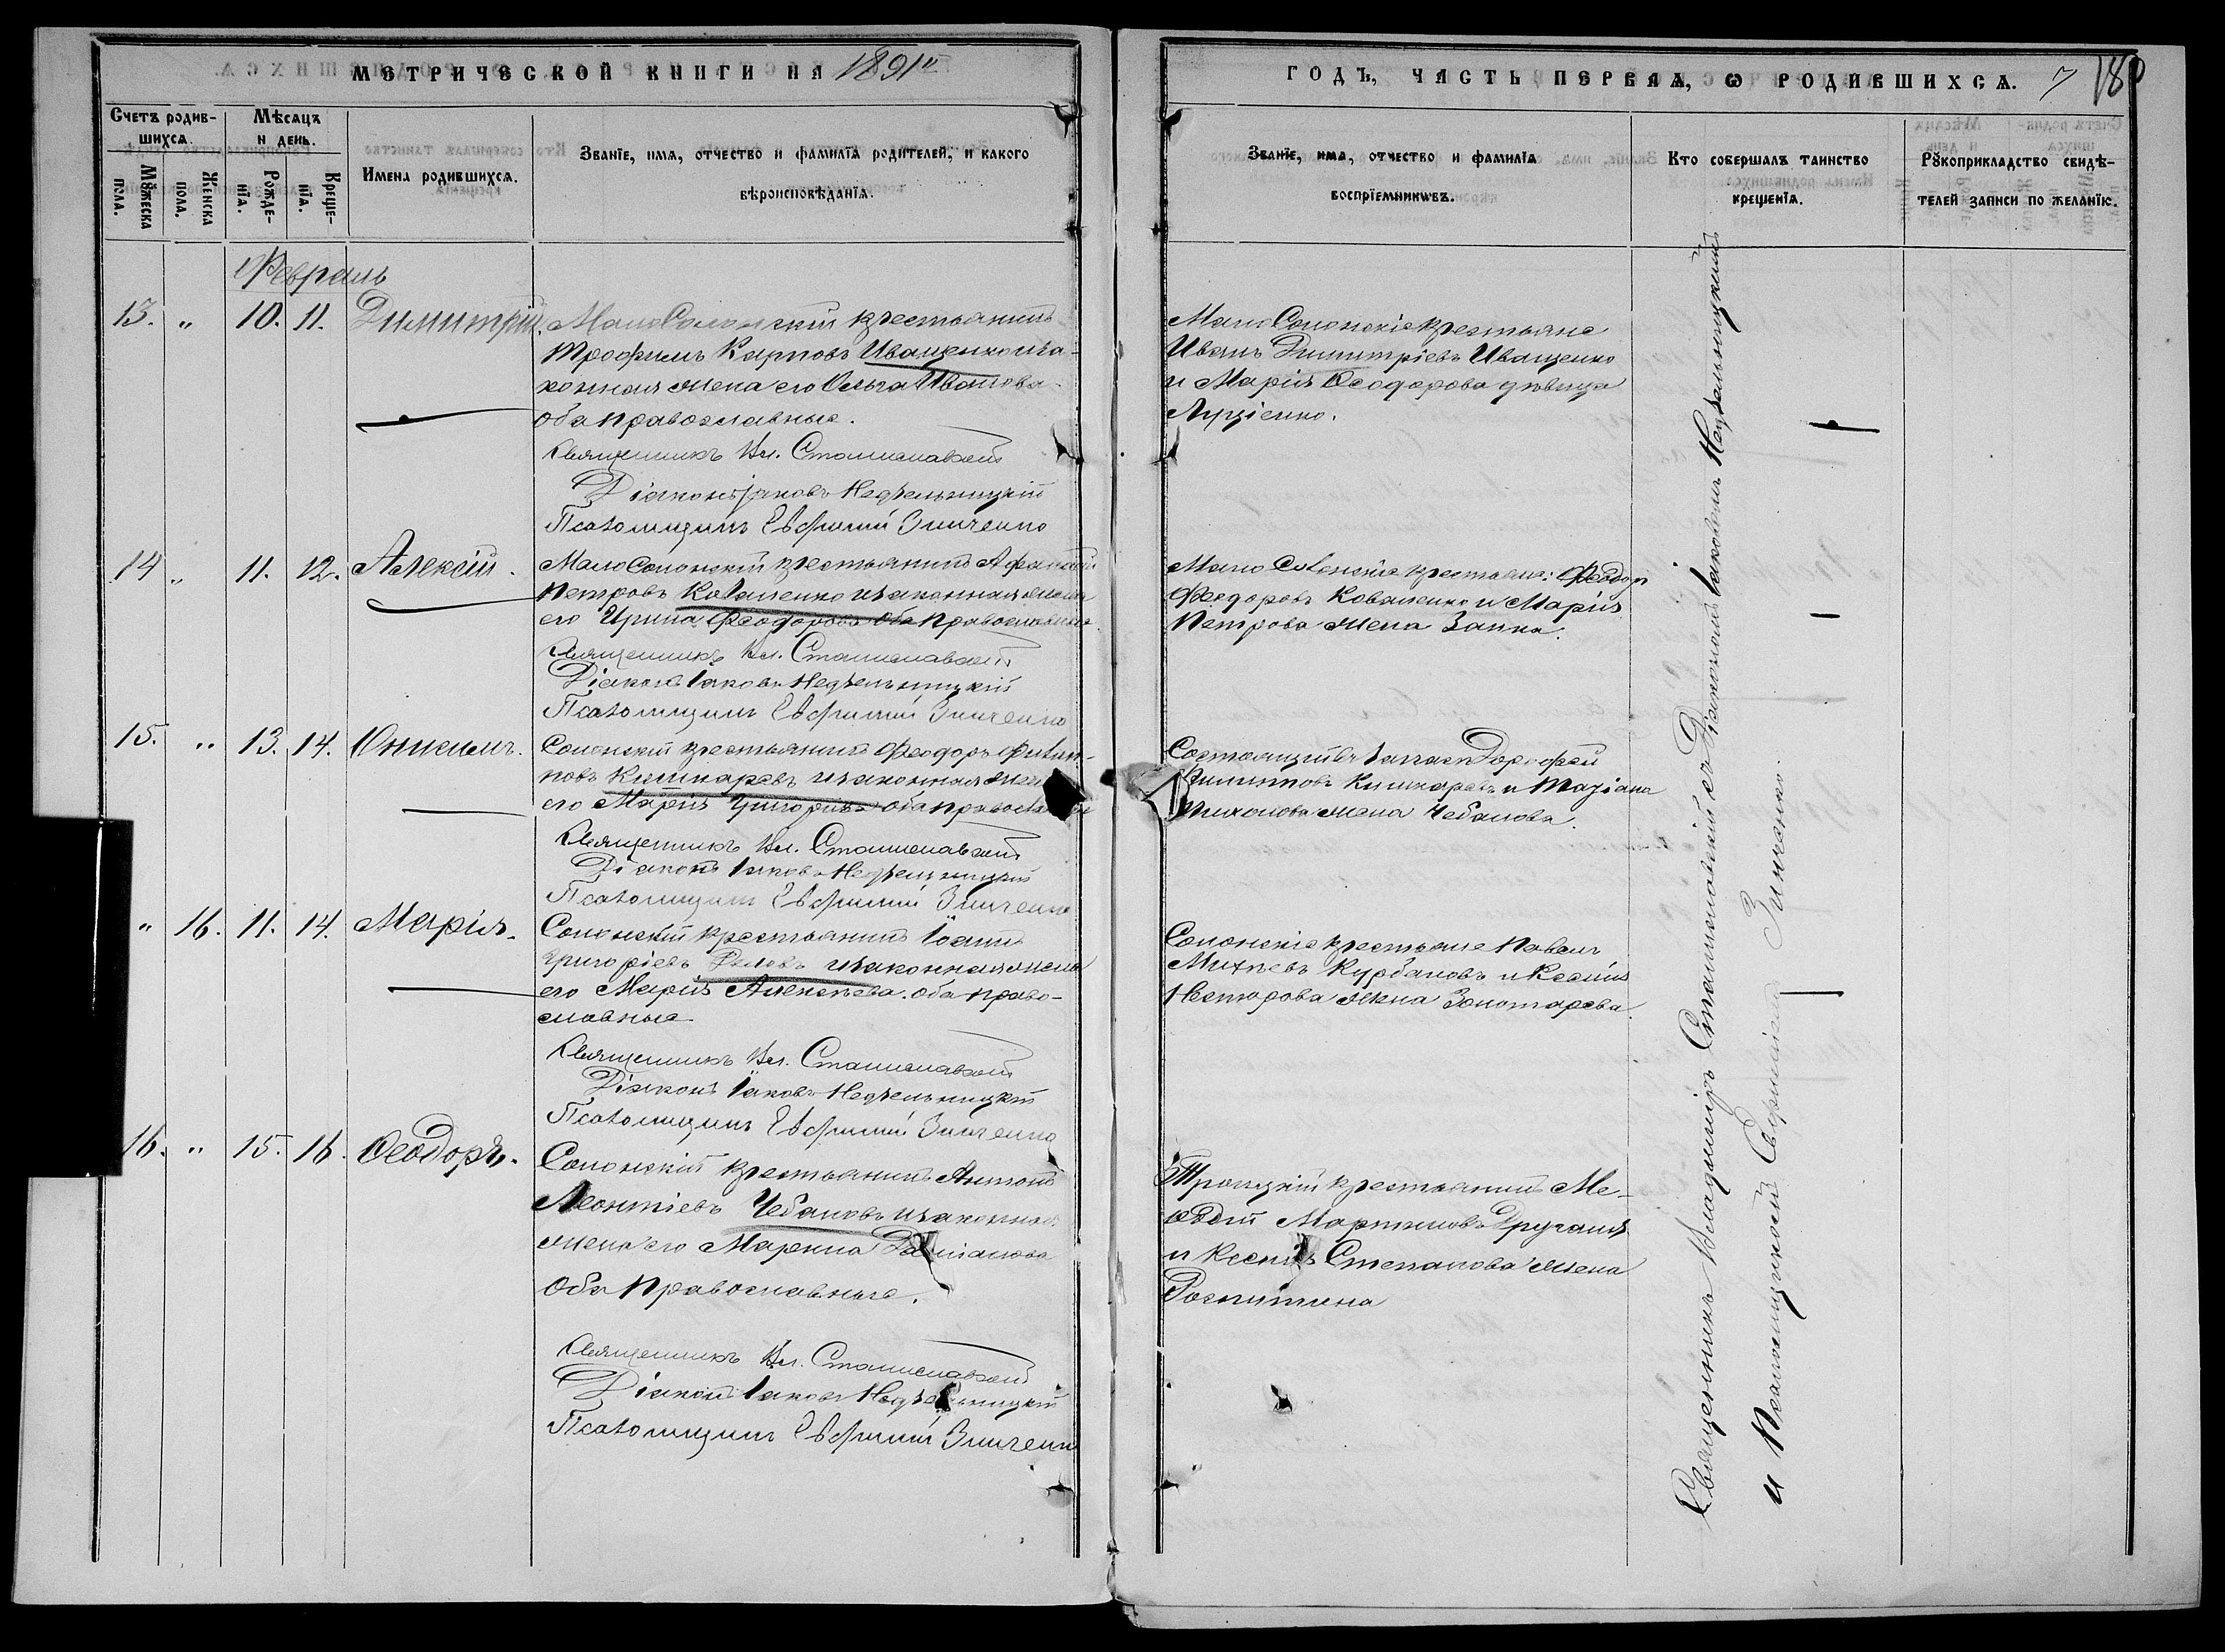 МЕТРИЧЕСКОЙ КНИГИ НА 1891й
ГОДЪ, ЧАСТЬ ПЕРВАЯ, Ѡ РОДИВШИХСѦ. 7 180
Счетъ родив-
шихсѧ.
Мѣсяцъ
и день.
Мꙋжеска
пола.
Женска
пола.
Рожде-
нїѧ.
Креще-
нїѧ.
Имена родившихсѧ.
Званїе, имѧ, отчество и фамилїѧ родителей, и какого
вѣроисповѣданїѧ.
Званїе, имѧ, отчество и фамилїѧ
воспрїемникωвъ.
Кто совершалъ таинство
крещенїѧ.
Рꙋкоприкладство свидѣ-
телей записи по желанїю.
Февраль
13. " 10. 11. Димитрій.
Мало Солонскій крестьянинъ
Трофимъ Карповъ Иващенко и за-
конная жена его Ольга Иванова
оба православные.
Священникъ Вл. Станиславскій
Діаконъ Іаковъ Недѣльницкій
Псаломщикъ Евфимій Зинченко
Мало Солонскіе крестьяне
Иванъ Димитріевъ Иващенко
и Марія Ѳеодорова дѣвица
Луценко.
14 " 11. 12. Алексій.
Мало Солонскій крестьянинъ Афанасій
Петровъ Коваленко и законная жена
его Ирина Феодорова оба православные
Священникъ Вл. Станиславскій
Діаконъ Іаковъ Недѣльницкій
Псаломщикъ Евфимій Зинченко
Мало Солонскіе крестьяне: Феодоръ
Феодоровъ Коваленко и Марія
Петрова жена Заика.
15. " 13. 14. Онисимъ.
Солонскій крестьянинъ Феодоръ Филип-
повъ Кишкаревъ и законная жена
его Марія Григорьева оба православные
Священникъ Вл. Станиславскій
Діаконъ Іаковъ Недѣльницкій
Псаломщикъ Евфимій Зинченко
Состоящій въ запасѣ Дорофей
Филипповъ Кишкаревъ и
жена Чебанова.
" 16. 11. 14. Марія.
Солонскій крестьянинъ Іоаннъ
Григоріевъ и законная жена
его Марія Алексѣева. оба право-
славные
Священникъ Вл. Станиславскій
Діаконъ Іаковъ Недѣльницкій
Псаломщикъ Евфимій Зинченко
Солонскіе крестьяне Павелъ
Михѣевъ Курбановъ и Ксенія
Несторова жена Золотарева.
16. " 15. 16. Ѳеодоръ.
Солонскій крестьянинъ Антонъ
Леонтіевъ Чебановъ и законная
жена его Марина
Оба Православные.
Священникъ Вл. Станиславскій
Діаконъ Іаковъ Недѣльницкій
Псаломщикъ Евфимій Зинченко
Троицкій крестьянинъ Ме-
ѳодій Мартиновъ
и Ксенія Степанова жена
Священникъ Владиміръ Станиславскій съ Діакономъ Іаковомъ Недѣльницкимъ
и Псаломщикомъ Евфиміемъ Зинченко.